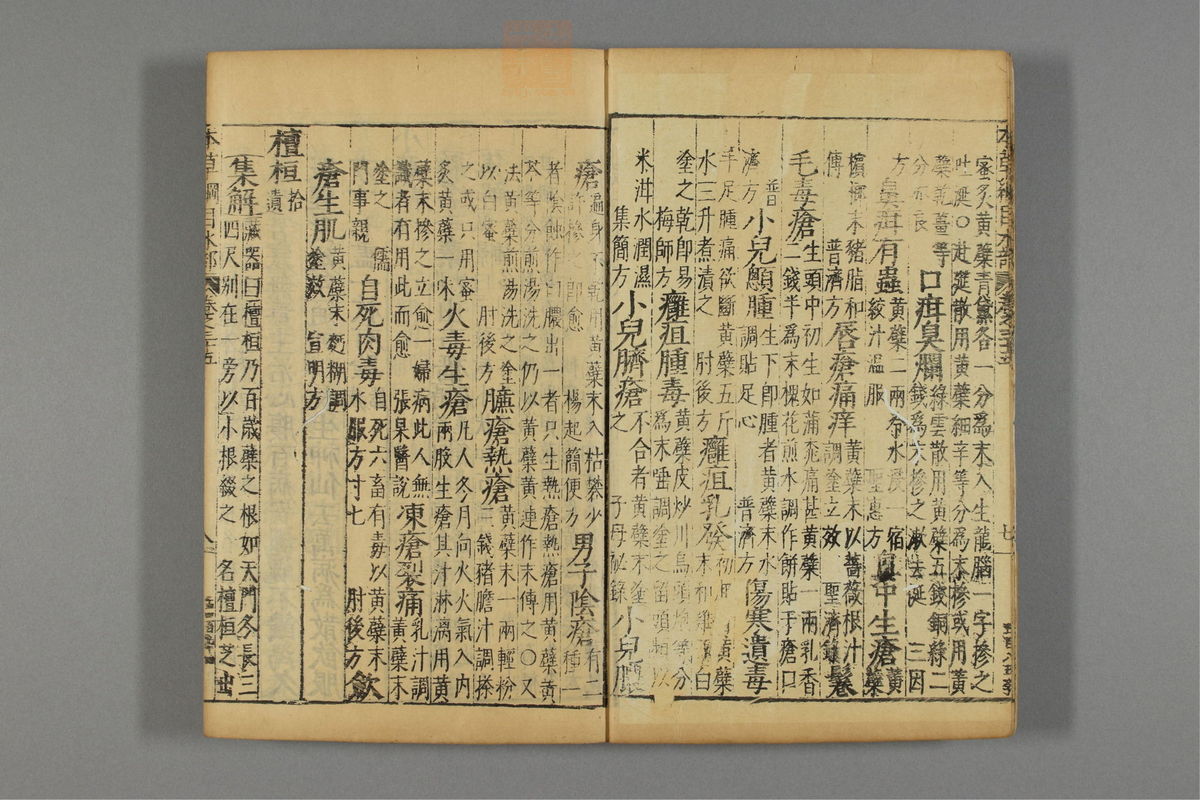 本草綱目木部 卷之三十五 七
密炙黃蘗青黛各一分爲末入生龍腦一字摻之
吐涎○赴筵散用黃蘗細辛等分爲末摻或用黃
蘗乾薑等分亦良 口疳臭爛 綠雲散用黃蘗五錢銅綠二錢爲末摻之漱去涎 三因
方 鼻疳有蟲 黃蘗二兩冷水浸一宿絞汁溫服 聖惠方 鼻中生瘡 黃蘗
檳榔末豬脂和傅 普濟方 唇瘡痛痒 黃蘗末以薔薇根汁調塗立效 聖濟錄 鬈
毛毒瘡 生頭中初生如蒲萄痛甚黃蘗一兩乳香二錢半爲末槐花煎水調作餅貼于瘡口
普濟方 小兒顖腫 生下即腫者黃蘗末水調貼足心 普濟方 傷寒遺毒
手足腫痛欲斷黃蘗五斤水三升煮漬之 肘後方 癰疽乳發 初起黃蘗末和雞子白
塗之乾即易 梅師方 癰疽腫毒 黃蘗皮炒川烏頭炮等分爲末唾調塗之留頭頻以
米泔水潤濕 集簡方 小兒臍瘡 不合者黃蘗末塗之 子母秘錄 小兒膿
瘡 遍身不乾用黃蘗末入枯礬少許摻之即愈 楊起簡便方 男子陰瘡 有二種一
者陰蝕作臼膿出一者只生熱瘡熱瘡用黃蘗黃
芩等分煎湯洗之仍以黃蘗黃連作末傅之○又
法黃蘗煎湯洗之塗以白蜜 肘後方 臁瘡熱瘡 黃蘗末一兩輕粉三錢豬膽汁調搽
之或只用蜜炙黃蘗一味 火毒生瘡 凡人冬月向火火氣入內兩股生瘡其汁淋漓用黃
蘗末摻之立愈一婦病此人無識者有用此而愈 張杲醫說 凍瘡裂痛 乳汁調黃蘗末
塗之 儒門事親 自死肉毒 自死六畜有毒以黃蘗末水服方寸七 肘後方 斂
瘡生肌 黃蘗末麪糊調塗效 宣明方
檀桓 拾遺
集解 藏器曰檀桓乃百歲蘗之根如天門冬長三四尺別在一旁以小根綴之 名檀桓芝出
本草綱目木部 卷之三十五 八